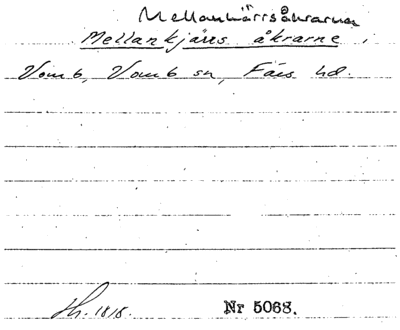 Mellankärrsåkrarna
Mellankjärrs åkrarne,
Vomb, Vomb sn, Färs hd.
Sk. 1818. Nr 5068.